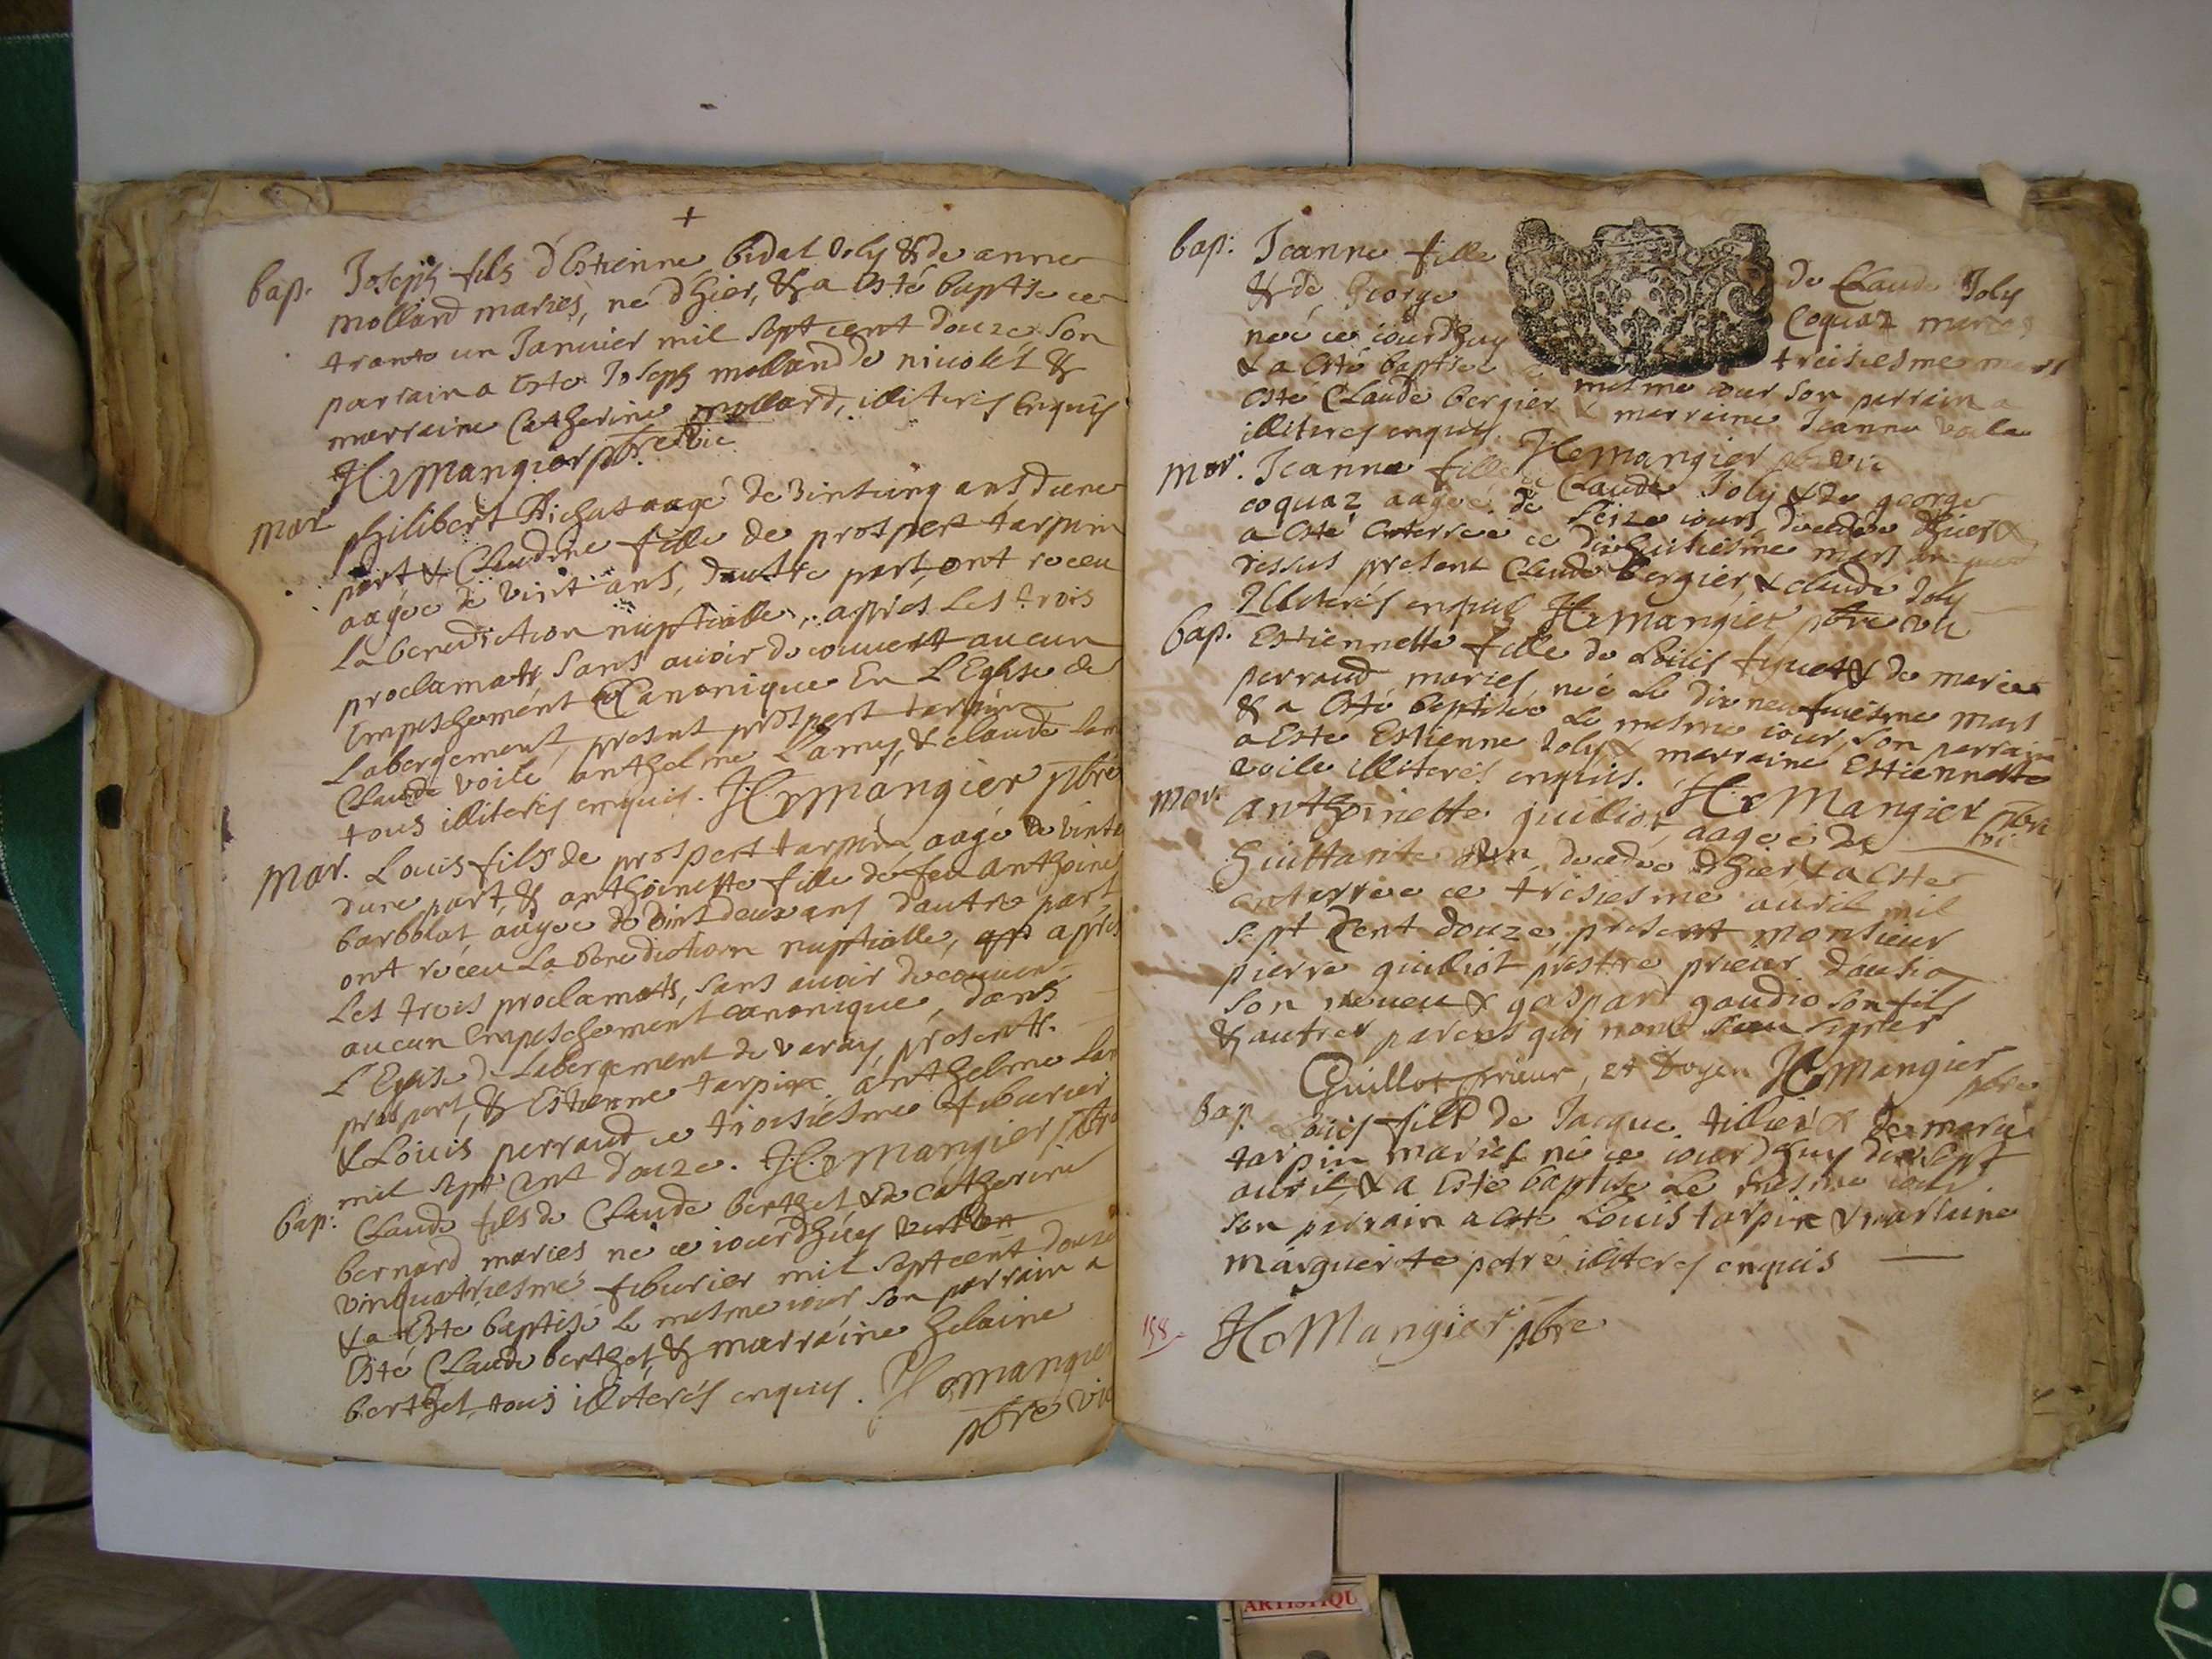 +
bap. Joseph fils d'Estienne bidal Joly & de anne
mollard mariés, né d'hier, & a esté baptise ce
trante un Januier mil sept cent douze, son
parrain a este Joseph molland de nicolet &
marraine Catherine mollard, illiterés enquis
H: Mangier pbre vic
mar philibert Richat aagé de vint cinq ans d'une
part & Claudine fille de prospert tarpin
aagée de vint ans, dautre part, ont receu
La benediction nuptialle, apres Les trois
proclamats sans auoir decouuert aucun
Empeschement Canonique En L'Eglise de
Labergement, presents prospert tarpin
Claude voile anthelme Lamy, & claude Lam
tous illiterés enquis. H: Mangier pbre
Mar. Louis fils de prospert tarpin aagé de vinte
dune part, & anthoinette fille de feu anthoine
barbolat aagee de vint deux ans dautre part
ont receu La benediction nuptialle, apres
Les trois proclamats, sans auoir decouuer
aucun Empeschement canonique, dans
L'Eglise de Labergement de varay, presents.
prospert, & Estienne tarpin anthelme Lam
& Louis perraud ce troisiesme feburier
mil sept cent douze. H: Mangier pbre
bap: Claude fils de Claude berthet & de Catherine
bernard mariés né ce iourdhuy
vinquatriesme feburier mil sept cent douze
& a Esté baptisé le mesme iour son parrain a
Esté Claude berthet & marraine helaine
berthet, tous illiterés enquis. H: Mangier
pbre vic
bap: Jeanne fille de Claude Joly
& de George Coquaz mariés
neé ce iourdhuy treisiesme mars
& a esté baptisée mesme iour son parrain a
esté Claude bergier & marraine Jeanne voile
illiterés enquis. H: Mangier pbre vic
mor. Jeanne fille de Claude Joly & de george
coquaz aagée de seize iours, decedée dhier &
a esté enterreé ce dixhuitiesme mars an que
dessus present Claude bergier, & claude Joly
Illiterés enquis H: Mangier pbre vic
bap. Estiennette fille de Louis figuet & de marie
perraud mariés, neé Le dixneufuiesme mars
& a esté baptisée Le mesme iour, son parrain
a este Estienne Joly, & marraine Estiennette
voile illiterés enquis. H: Mangier pbre
vi:
mor. anthoinette guilliot, aageé de
huittante an, decedée dhier & a este
enterrée ce trisiesme auril mil
sept Cent douze, present monsieur
pierre guilliot prestre prieur
son neueu & gaspard gaudio son fils
& autres parens qui nont sceu signer
Guillot prieur, et Doyen H: Mangier
pbre
bap. Louis fils de Jacque tillier & de marie
tarpin mariés né ce iourdhuy dixsept
auril, & a Esté baptise Le mesme iour
son parrain a este Louis tarpin & marraine
marguerite petré illiterés enquis
198 H: Mangier pbre
ARTISTIQU